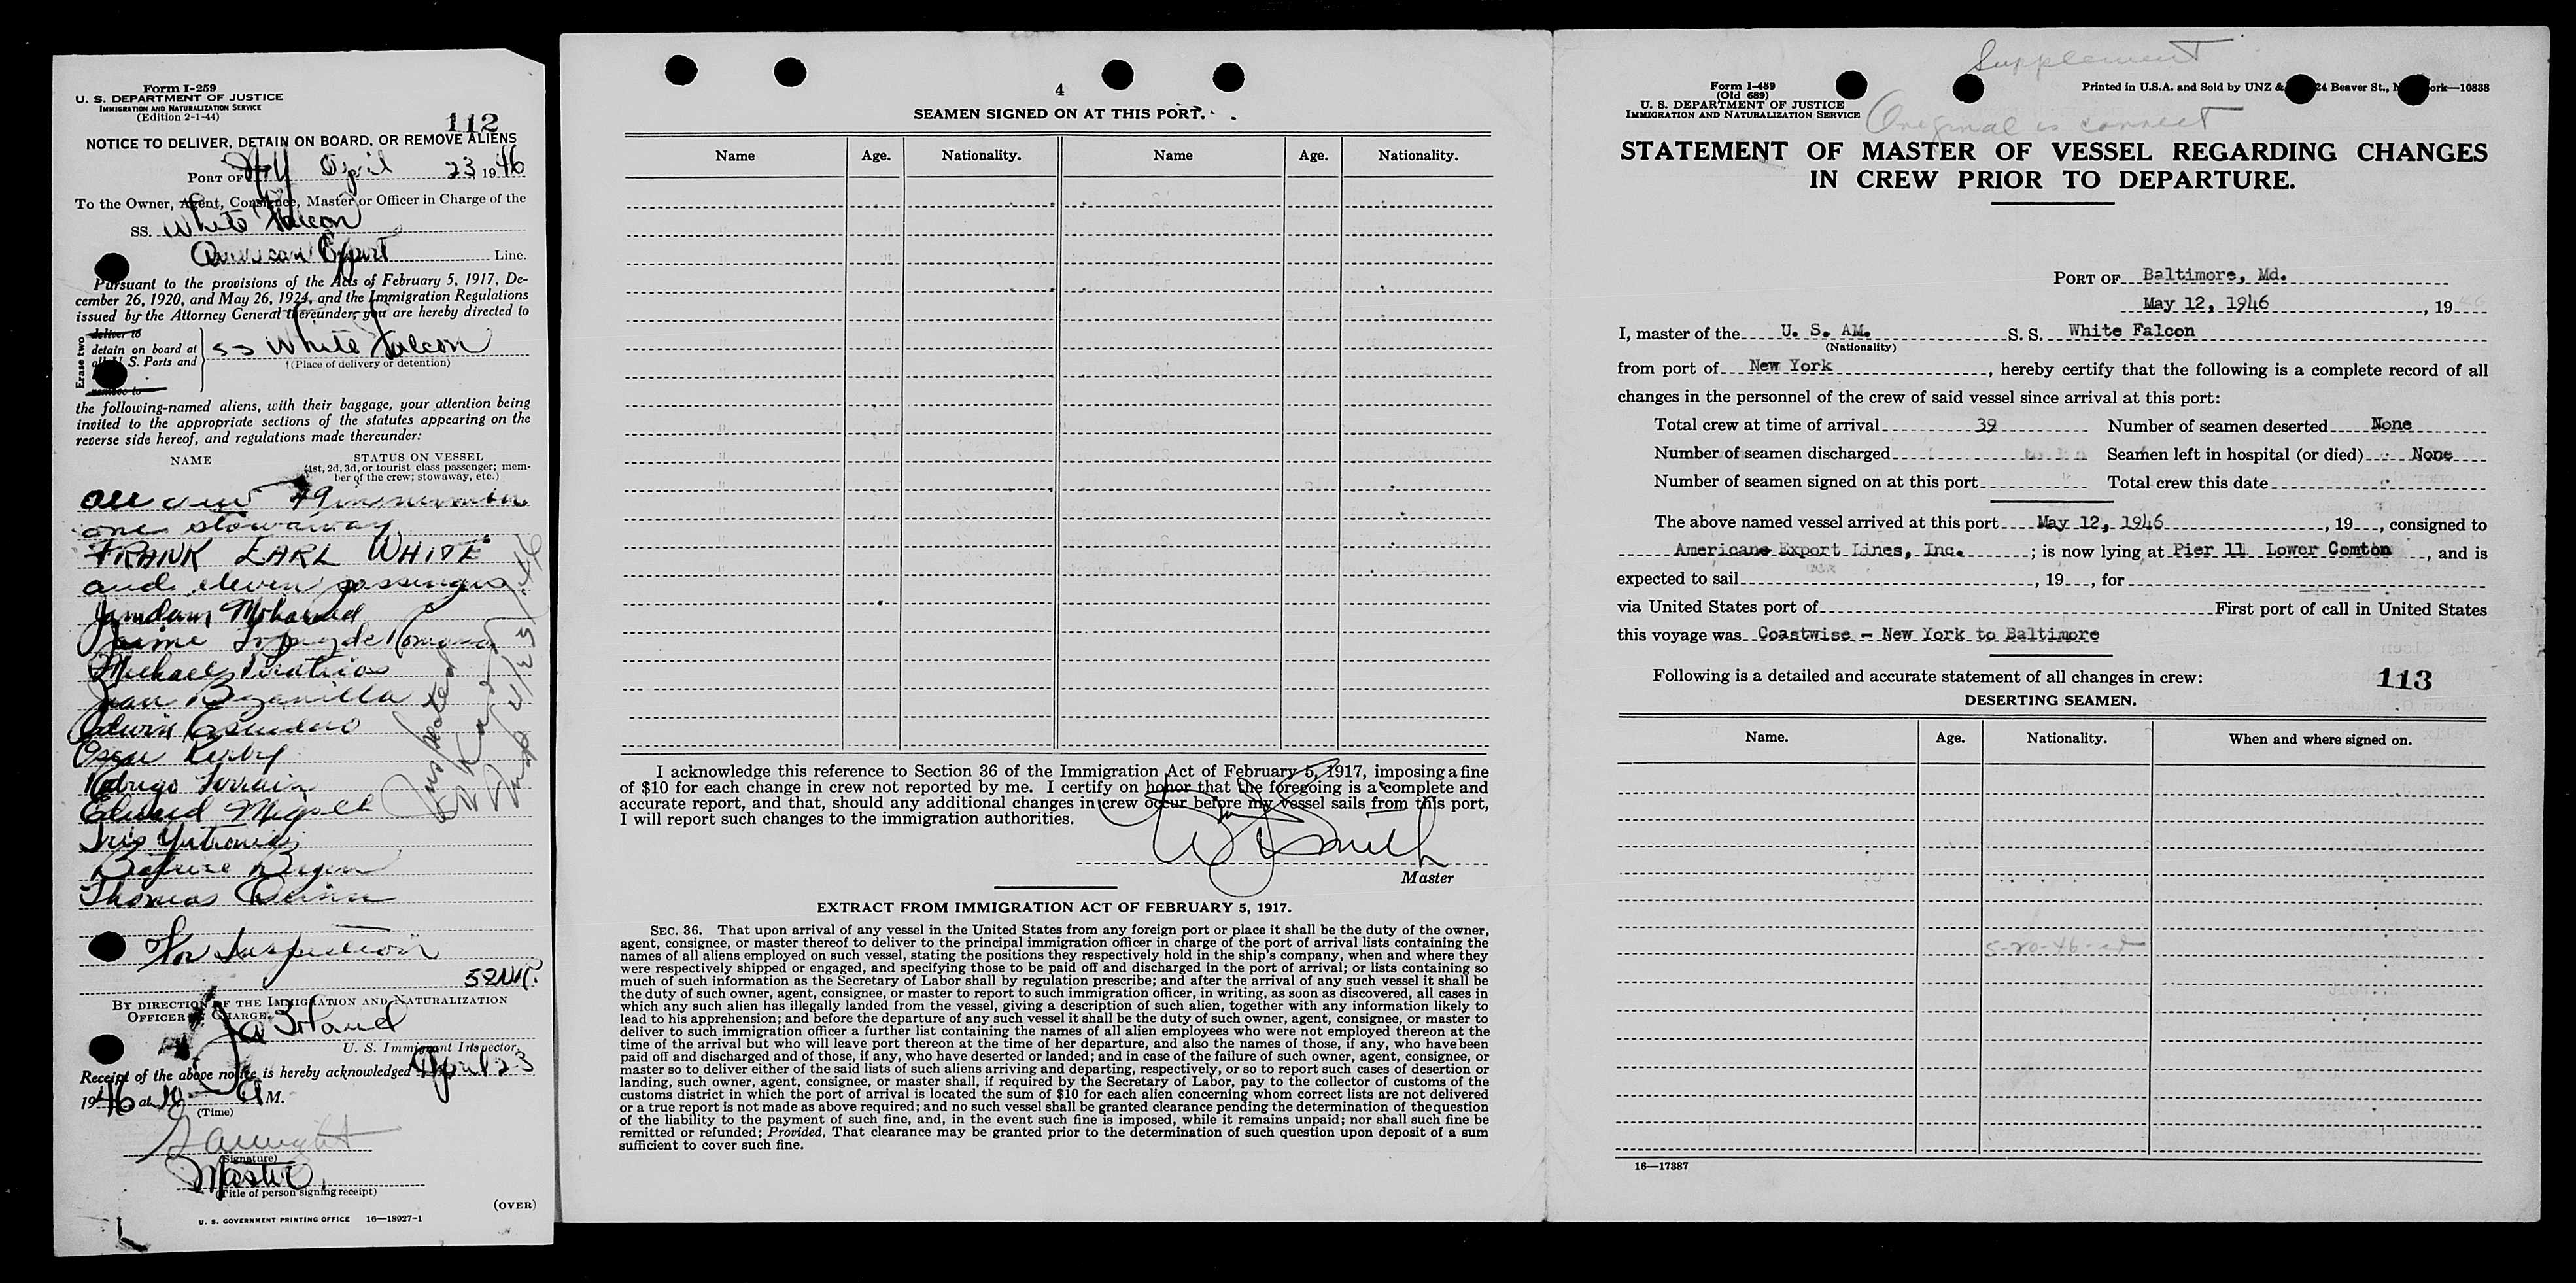 Form I-259
U. S. DEPARTMENT OF JUSTICE
IMMIGRATION AND NATURALIZATION SERVICE
(Edition 2-1-44)
112
NOTICE TO DELIVER, DETAIN ON BOARD, OR REMOVE ALIENS
PORT OF NY April 23, 1946
To the Owner, Agent, Consignee, Master or Officer in Charge of the
SS. White Falcon
American Export Line.
Pursuant to the provisions of the Acts of February 5, 1917, De-
cember 26, 1920, and May 26, 1924, and the Immigration Regulations
issued by the Attorney General thereunder, you are hereby directed to
Erase two
deliver to
detain on board at
all U. S. Ports and
remove to
SS White Falcon
†(Place of delivery or detention)
the following-named aliens, with their baggage, your attention being
invited to the appropriate sections of the statutes appearing on the
reverse side hereof, and regulations made thereunder:
NAME
STATUS ON VESSEL
(1st, 2d, 3d, or tourist class passenger; mem-
ber of the crew; stowaway, etc.)
all crew 49 in number
one stowaway
FRANK EARL WHITE
and eleven passengers
Mohamed
Jaime
Michael
Juan Bezanilla
Edwin
Oscar Kerby
Rodrigo Larrain
Edward
Iris Yutronic
Thomas
Inspected
For Inspection
By DIRECTION OF THE IMMIGRATION AND NATURALIZATION
OFFICER IN CHARGE.
U. S. Immigrant Inspector
Receipt of the above notice is hereby acknowledged April 23
1946 at 10 A M.
(Time)
(Signature)
Master
(Title of person signing receipt)
(OVER)
U. S. GOVERNMENT PRINTING OFFICE 16—18927-1
4
SEAMEN SIGNED ON AT THIS PORT.
Name Age. Nationality. Name Age. Nationality.
I acknowledge this reference to Section 36 of the Immigration Act of February 5, 1917, imposing a fine
of $10 for each change in crew not reported by me. I certify on honor that the foregoing is a complete and
accurate report, and that, should any additional changes in crew occur before my vessel sails from this port,
I will report such changes to the immigration authorities.
Smith
Master
EXTRACT FROM IMMIGRATION ACT OF FEBRUARY 5, 1917.
SEC. 36. That upon arrival of any vessel in the United States from any foreign port or place it shall be the duty of the owner,
agent, consignee, or master thereof to deliver to the principal immigration officer in charge of the port of arrival lists containing the
names of all aliens employed on such vessel, stating the positions they respectively hold in the ship's company, when and where they
were respectively shipped or engaged, and specifying those to be paid off and discharged in the port of arrival; or lists containing so
much of such information as the Secretary of Labor shall by regulation prescribe; and after the arrival of any such vessel it shall be
the duty of such owner, agent, consignee, or master to report to such immigration officer, in writing, as soon as discovered, all cases in
which any such alien has illegally landed from the vessel, giving a description of such alien, together with any information likely to
lead to his apprehension; and before the departure of any such vessel it shall be the duty of such owner, agent, consignee, or master to
deliver to such immigration officer a further list containing the names of all alien employees who were not employed thereon at the
time of the arrival but who will leave port thereon at the time of her departure, and also the names of those, if any, who have been
paid off and discharged and of those, if any, who have deserted or landed; and in case of the failure of such owner, agent, consignee, or
master so to deliver either of the said lists of such aliens arriving and departing, respectively, or so to report such cases of desertion or
landing, such owner, agent, consignee, or master shall, if required by the Secretary of Labor, pay to the collector of customs of the
customs district in which the port of arrival is located the sum of $10 for each alien concerning whom correct lists are not delivered
or a true report is not made as above required; and no such vessel shall be granted clearance pending the determination of the question
of the liability to the payment of such fine, and, in the event such fine is imposed, while it remains unpaid; nor shall such fine be
remitted or refunded; Provided, That clearance may be granted prior to the determination of such question upon deposit of a sum
sufficient to cover such fine.
Supplement
Form I-489
(Old 689)
U. S. DEPARTMENT OF JUSTICE
IMMIGRATION AND NATURALIZATION SERVICE
Printed in U.S.A. and Sold by UNZ & 24 Beaver St., N ork—10838
Original is correct
STATEMENT OF MASTER OF VESSEL REGARDING CHANGES
IN CREW PRIOR TO DEPARTURE.
PORT OF Baltimore, Md.
May 12, 1946, 19 46
I, master of the U. S. AM. S. S. White Falcon
(Nationality)
from port of New York, hereby certify that the following is a complete record of all
changes in the personnel of the crew of said vessel since arrival at this port:
Total crew at time of arrival 39 Number of seamen deserted None
Number of seamen discharged Seamen left in hospital (or died) None
Number of seamen signed on at this port Total crew this date
The above named vessel arrived at this port May 12, 1946, 19, consigned to
Americane Export Lines, Inc.; is now lying at Pier 11 Lower Comton, and is
expected to sail, 19, for
via United States port of First port of call in United States
this voyage was Coastwise - New York to Baltimore
Following is a detailed and accurate statement of all changes in crew:
113
DESERTING SEAMEN.
Name. Age. Nationality. When and where signed on.
5-20-46
16—17387